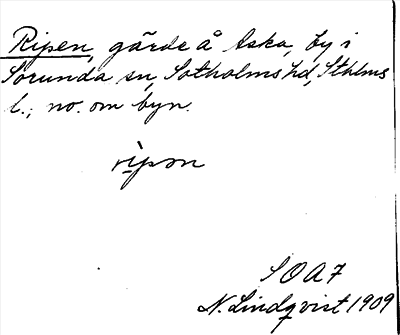 Ripen, gärde å Aska, by i
Sorunda sn, Sotholms hd, Sthlms
l.; no. om byn.
ripən
SOA7
N. Lindqvist 1909